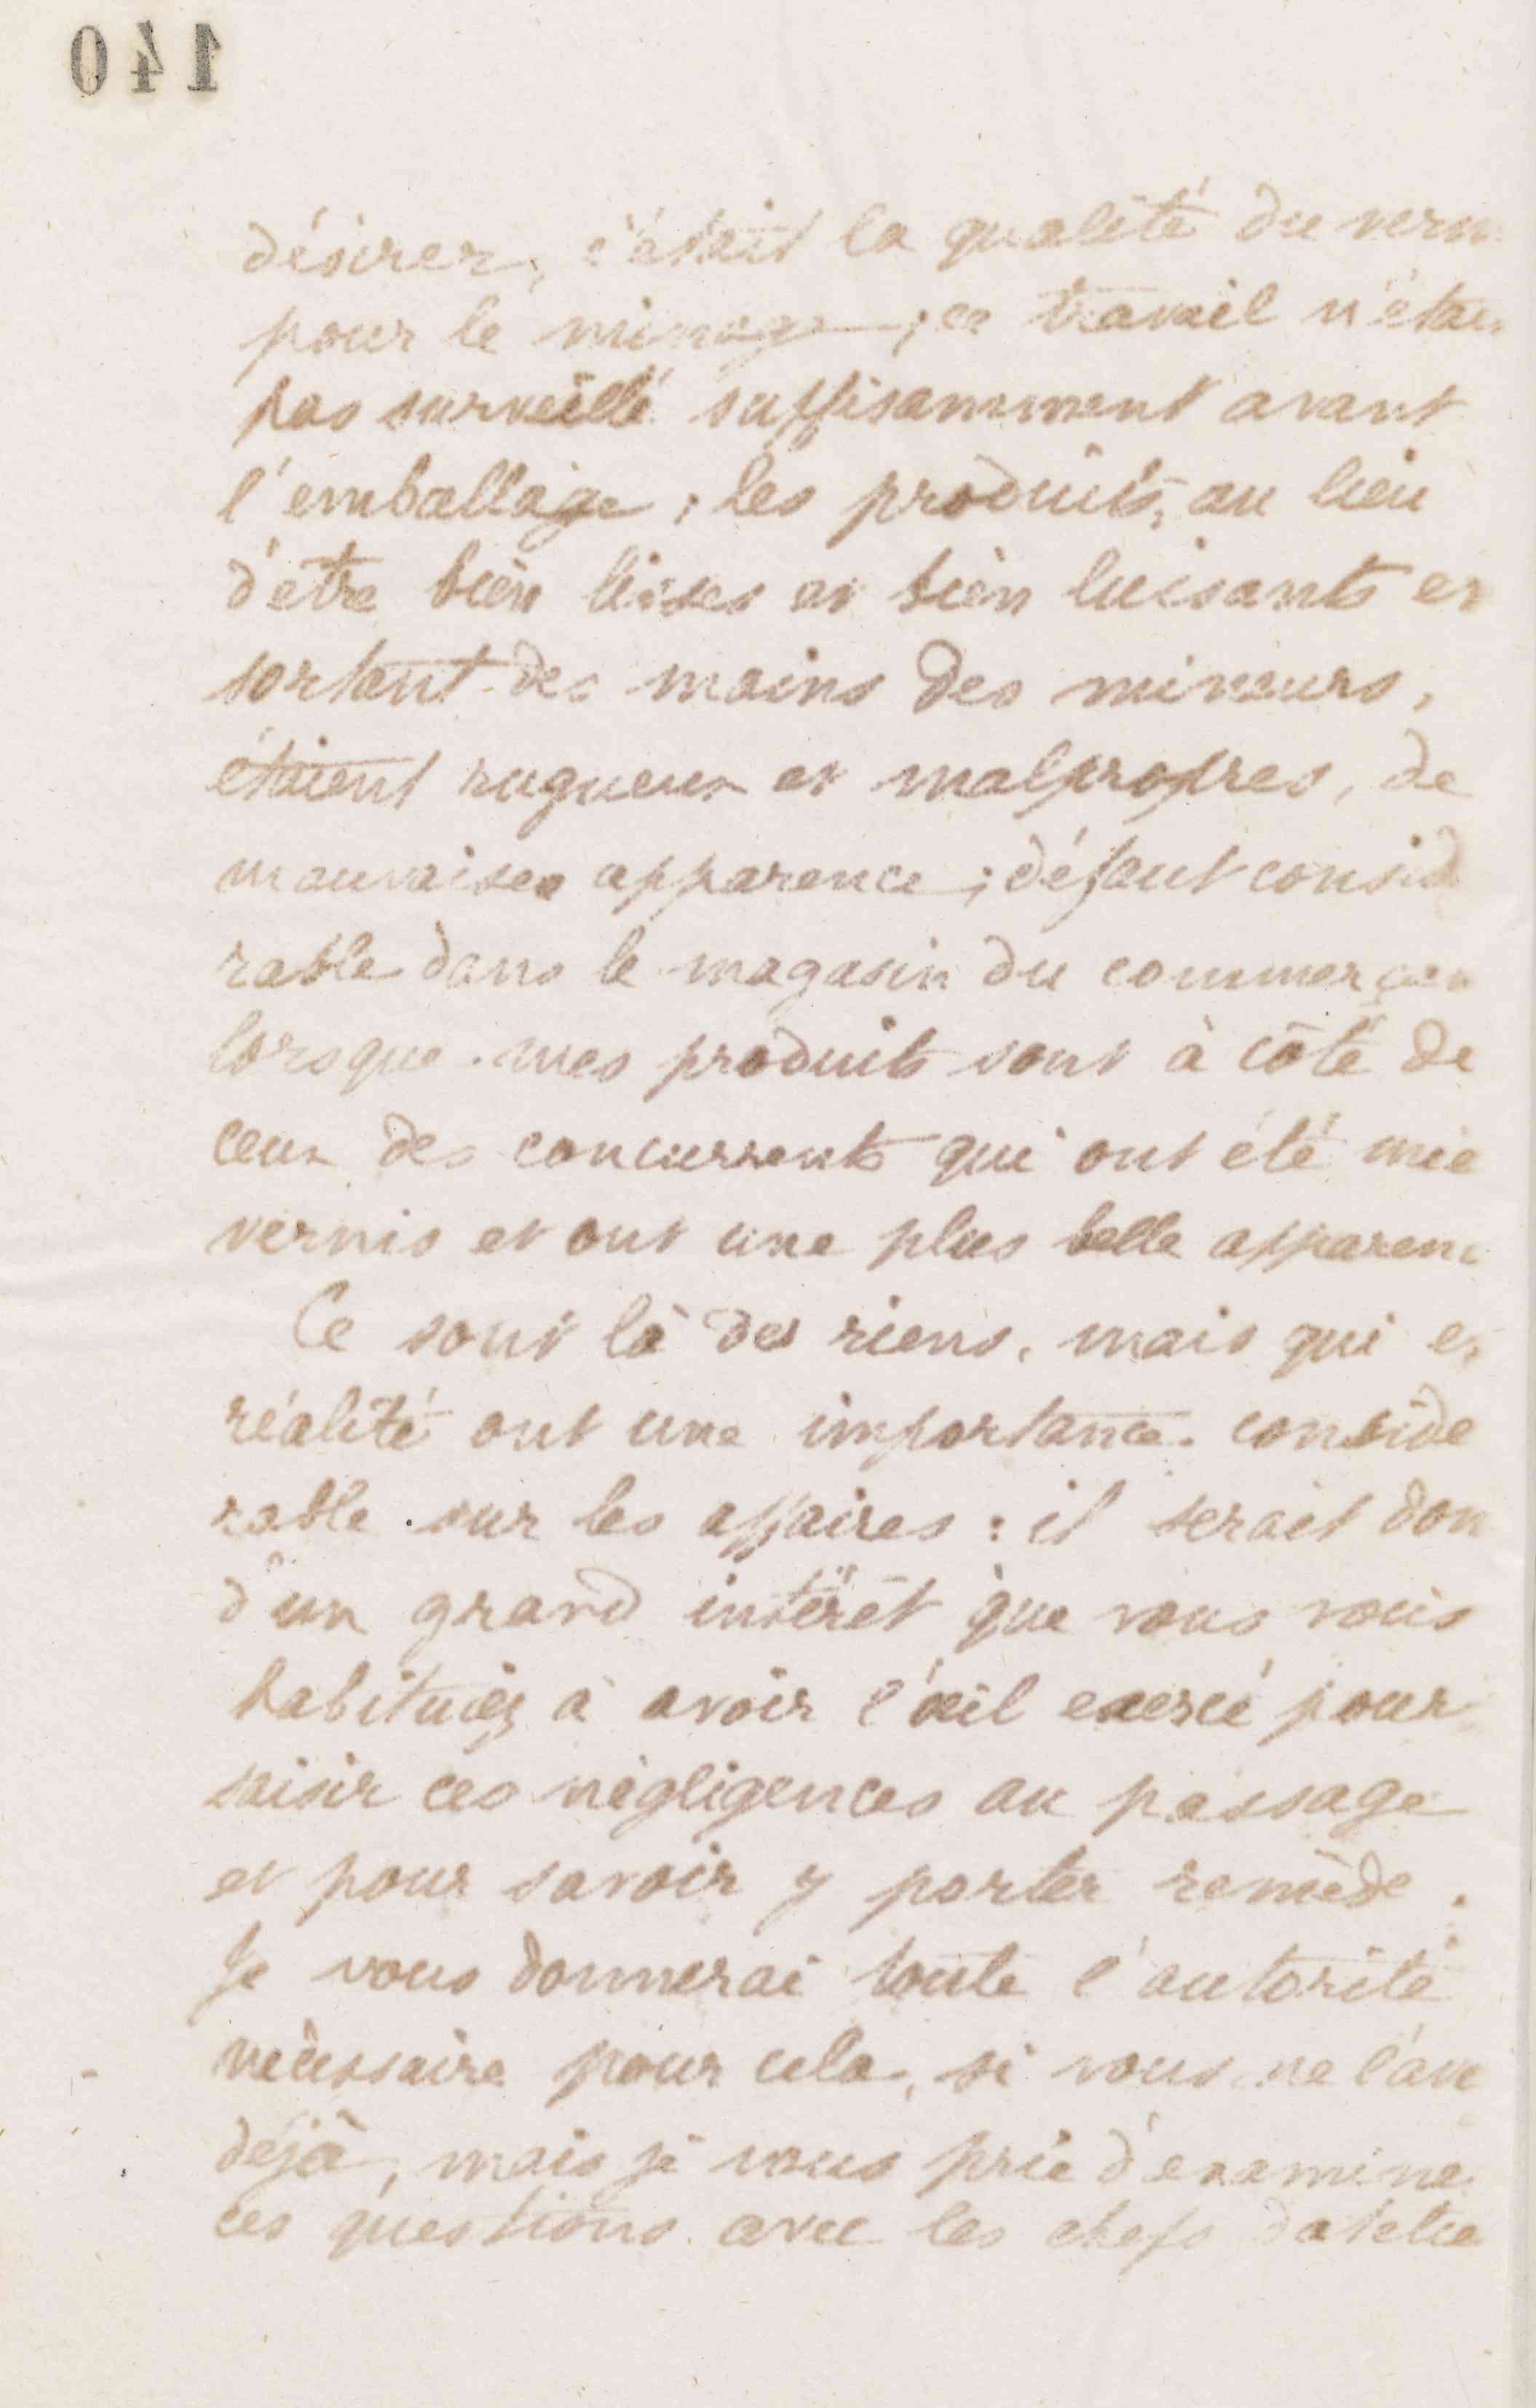 140
désirer, c'était la qualité du verni
pour le minage ; ce travail n'étai
pas surveillé suffisamment avant
l'emballage ; les produits, au lieu
d'être bien lisses et bien luisants en
sortant des mains des mineurs,
étaient rugueux et malpropres, de
mauvaises apparence ; défaut consid
rable dans le magasin du commerçan
lorsque mes produits sont à côté de
ceux des concurrents qui ont été mie
vernis et ont une plus belle apparenc
Ce sont là des riens, mais qui en
réalité ont une importance considé
rable sur les affaires : il serait don
d'un grand intérêt que vous vous
habituiez à avoir l'œil exercé pour
saisir ces négligences au passage
et pour savoir y porter remède.
Je vous donnerai toute l'autorité
nécessaire pour cela, si vous ne l'ave
déjà, mais je vous prie d'examine
ces questions avec les chefs d'atelie